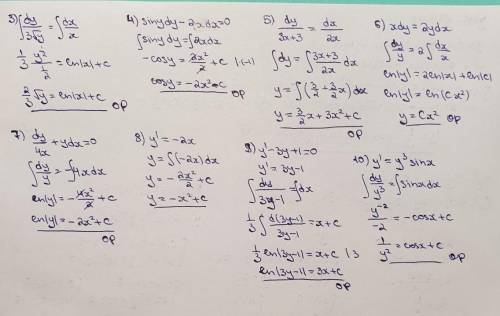 3) ∫ dy/3√y = ∫ dx/x
1/3 y^(1/2)/(1/2) = ln|x|+c
2/3 √y = ln|x|+c
OP
4) siny dy - 2x dx = 0
∫ siny dy = ∫ 2x dx
-cosy = 2x²/2 + c |·(-1)
cosy = -2x²+c
OP
5) dy/(3x+3) = dx/2x
∫ dy = ∫ (3x+3)/2x dx
y = ∫ (3/2 + 3/2 x) dx
y = 3/2 x + 3x² + c
OP
6) x dy = 2y dx
∫ dy/y = 2 ∫ dx/x
ln|y| = 2ln|x| + ln|c|
ln|y| = ln(Cx²)
y = Cx²
OP
7) dy/4x + y dx = 0
∫ dy/y = -∫ 4x dx
ln|y| = -4x²/2 + c
ln|y| = -2x²+c
OP
8) y' = -2x
y = ∫(-2x)dx
y = -2x²/2 + c
y = -x²+c
9) y'-3y+1=0
y' = 3y-1
∫ dy/(3y-1) = ∫ dx
1/3 ∫ d(3y-1)/(3y-1) = x+c
1/3 ln|3y-1| = x+c |·3
ln|3y-1| = 3x+c
OP
10) y' = y³ sinx
∫ dy/y³ = ∫ sinx dx
y^(-2)/-2 = -cosx+c
1/y² = cosx+c
OP